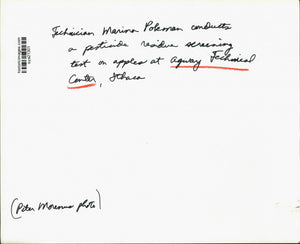 Technician Marina Pokeman conducts
a pesticide residue screening
test on apples at Agway Technical
Center, Ithaca
(Peter Morenus photo)